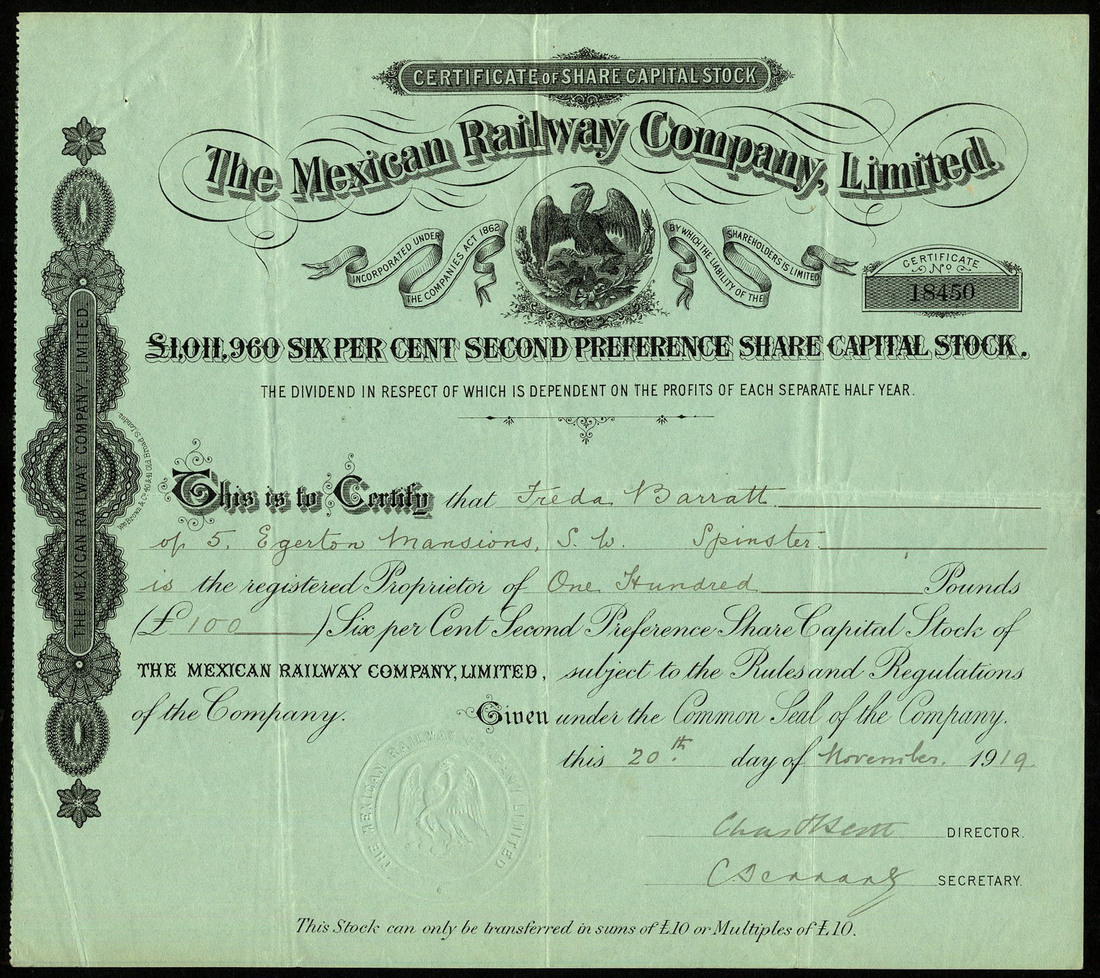 CERTIFICATE OF SHARE CAPITAL STOCK
The Mexican Railway Company, Limited
INCORPORATED UNDER
THE COMPANIES ACT 1862
BY WHICH THE LIABILITY OF THE
SHAREHOLDERS IS LIMITED
CERTIFICATE
No
18450
£1,011,960 SIX PER CENT SECOND PREFERENCE SHARE CAPITAL STOCK.
THE DIVIDEND IN RESPECT OF WHICH IS DEPENDENT ON THE PROFITS OF EACH SEPARATE HALF YEAR.
THE MEXICAN RAILWAY COMPANY, LIMITED.
This is to Certify that Freda Barratt
of 5, Egerton Mansions, S.W. Spinster
is the registered Proprietor of One Hundred Pounds
(£100) Six per Cent Second Preference Share Capital Stock of
THE MEXICAN RAILWAY COMPANY, LIMITED, subject to the Rules and Regulations
of the Company. Given under the Common Seal of the Company.
this 20th day of November. 1919
THE MEXICAN RAILWAY COMPANY LIMITED
DIRECTOR.
SECRETARY.
This Stock can only be transferred in sums of £10 or Multiples of £10.